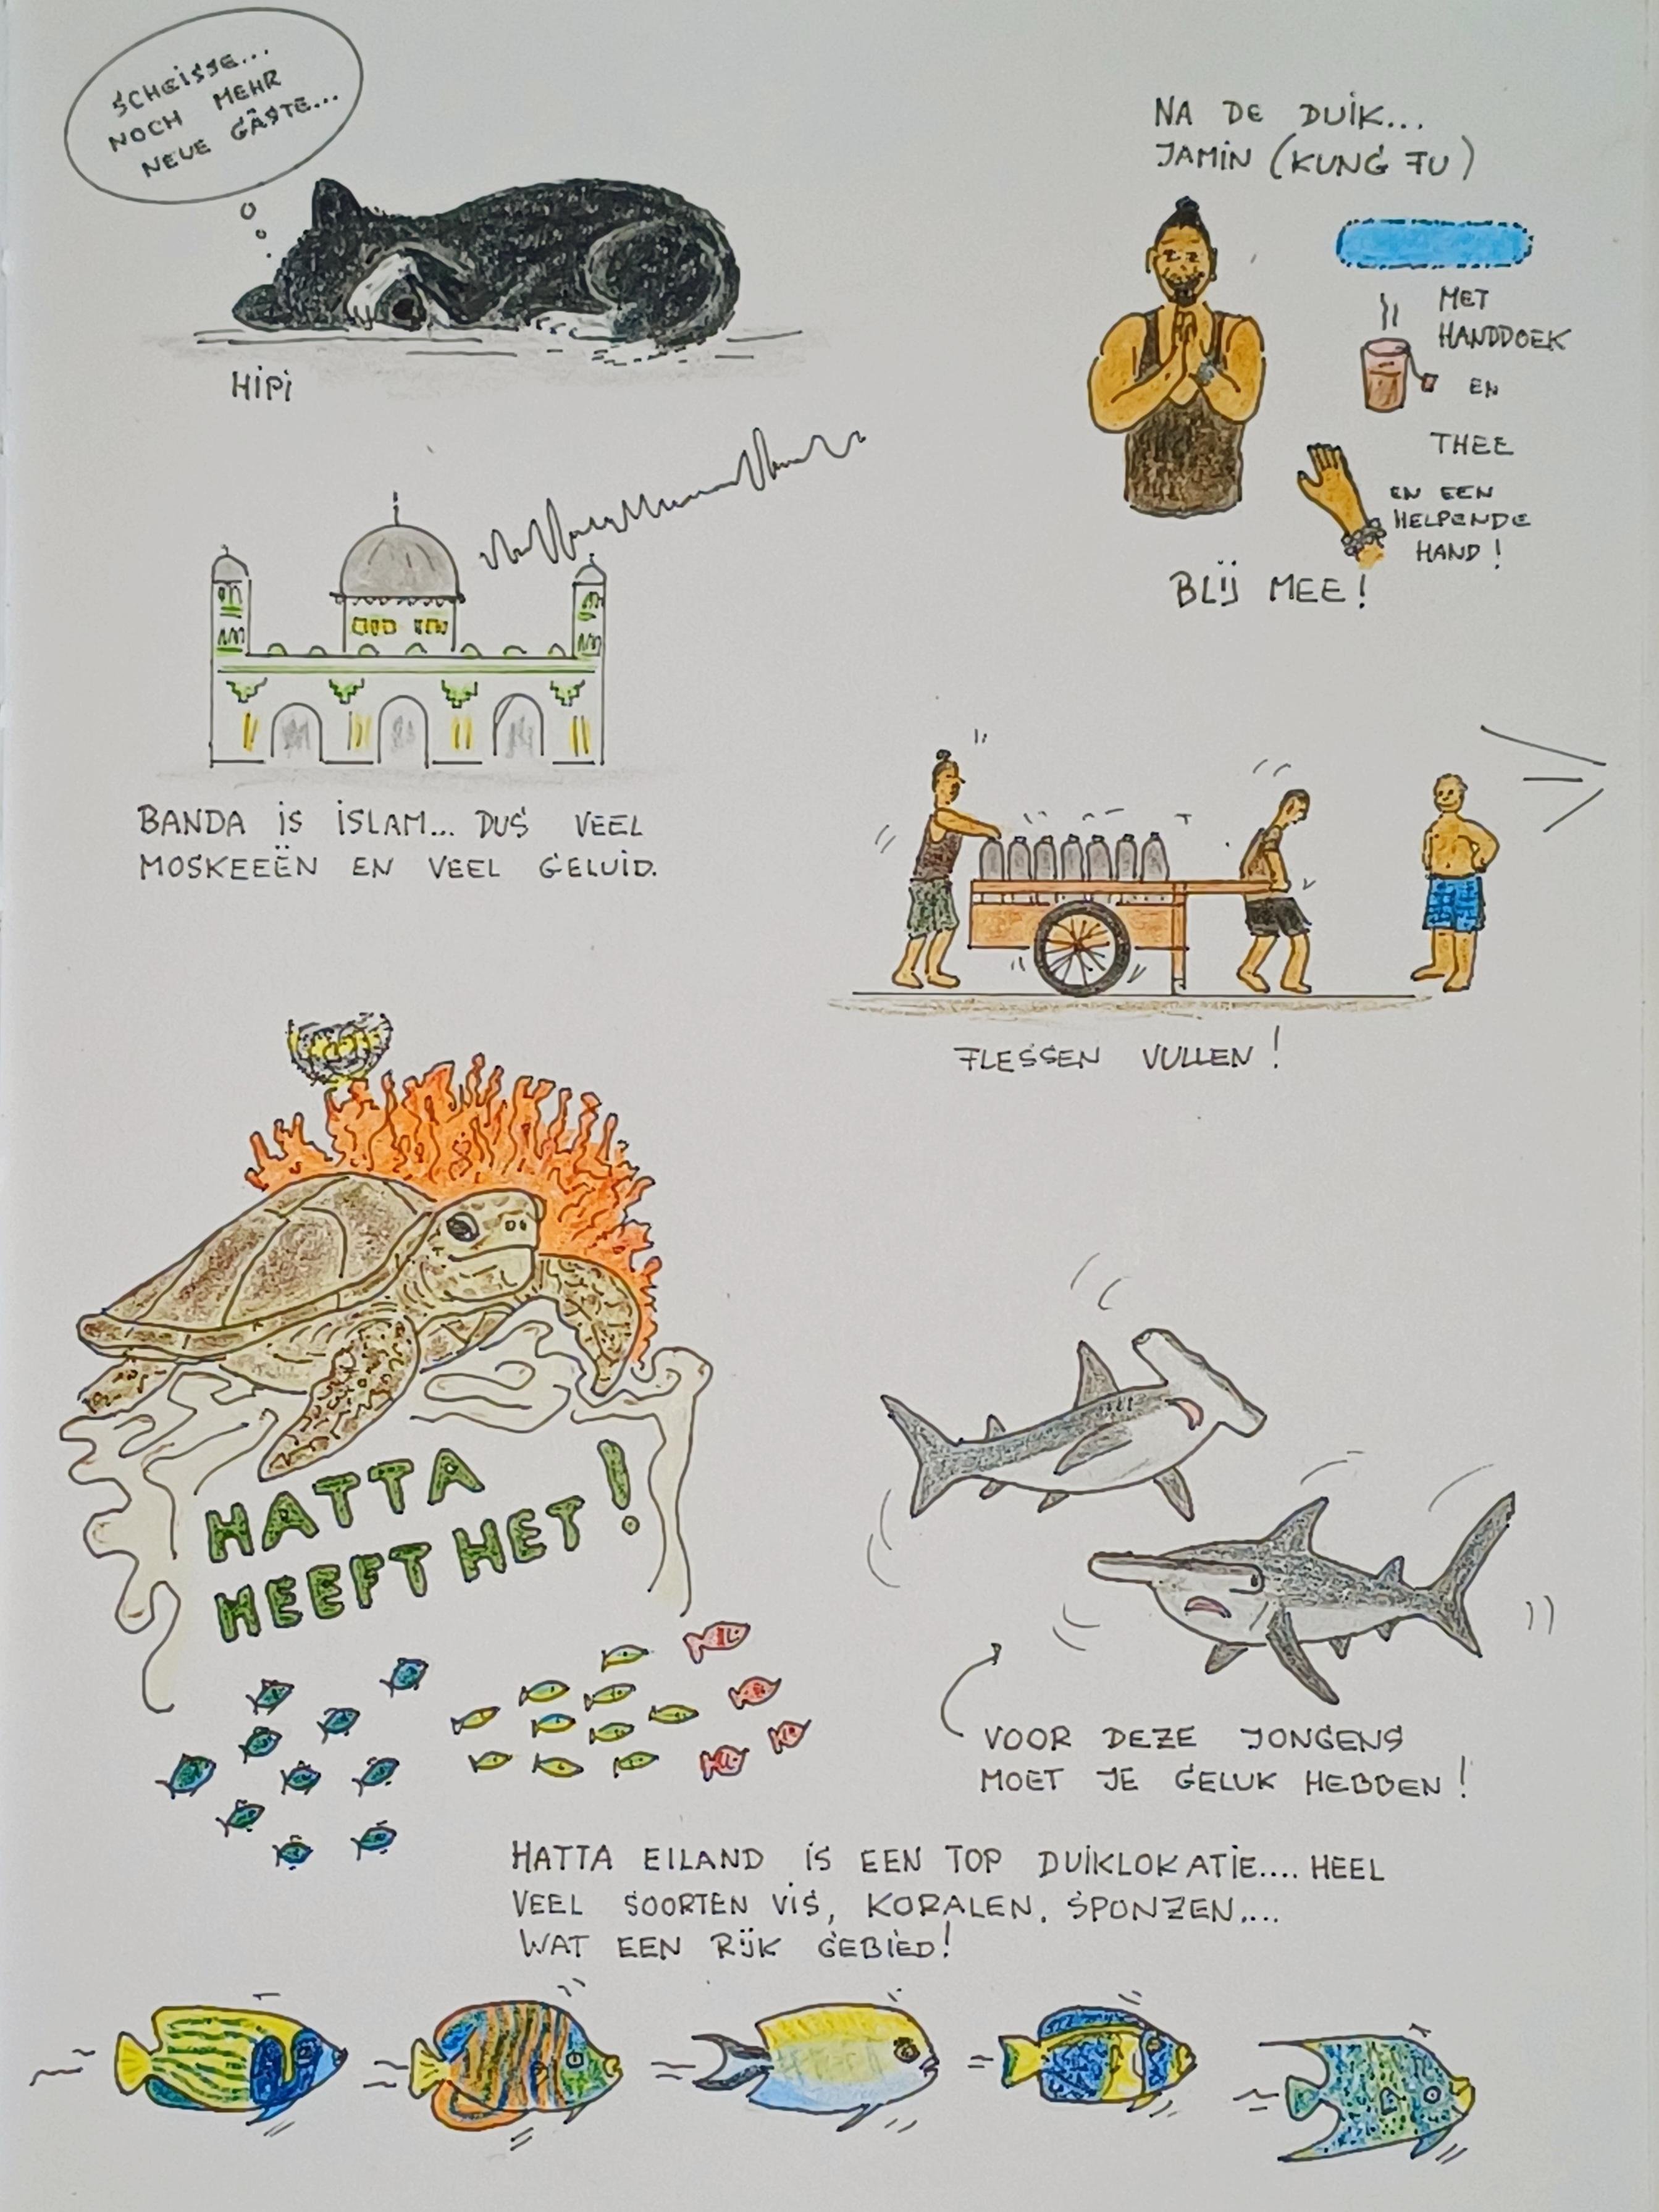 SCHEISSE...
NOCH MEHR
NEUE GÄSTE...
HIPI
NA DE DUIK...
JAMIN (KUNG FU)
MET
HANDDOEK
EN
THEE
EN EEN
HELPENDE
HAND!
BLIJ MEE!
BANDA IS ISLAM... DUS VEEL
MOSKEEËN EN VEEL GELUID.
FLESSEN VULLEN!
HATTA
HEEFT HET!
VOOR DEZE JONGENS
MOET JE GELUK HEBBEN!
HATTA EILAND IS EEN TOP DUIKLOKATIE.... HEEL
VEEL SOORTEN VIS, KORALEN, SPONZEN....
WAT EEN RIJK GEBIED!